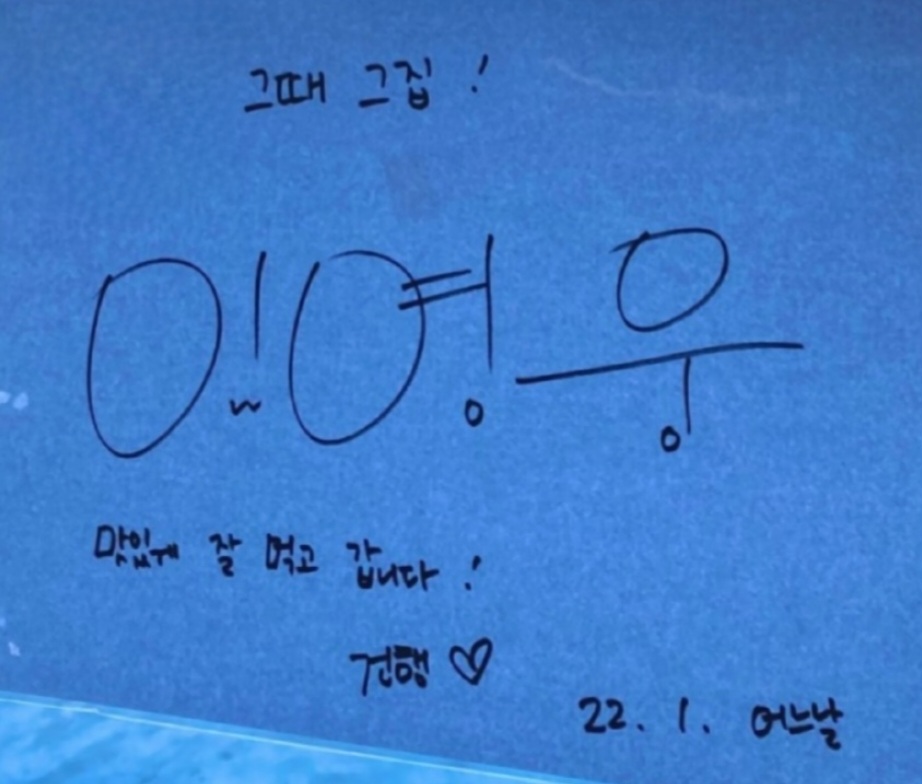 그때 그집 !
임영웅
맛있게 잘 먹고 갑니다 !
건행 ♡
22. 1. 어느날